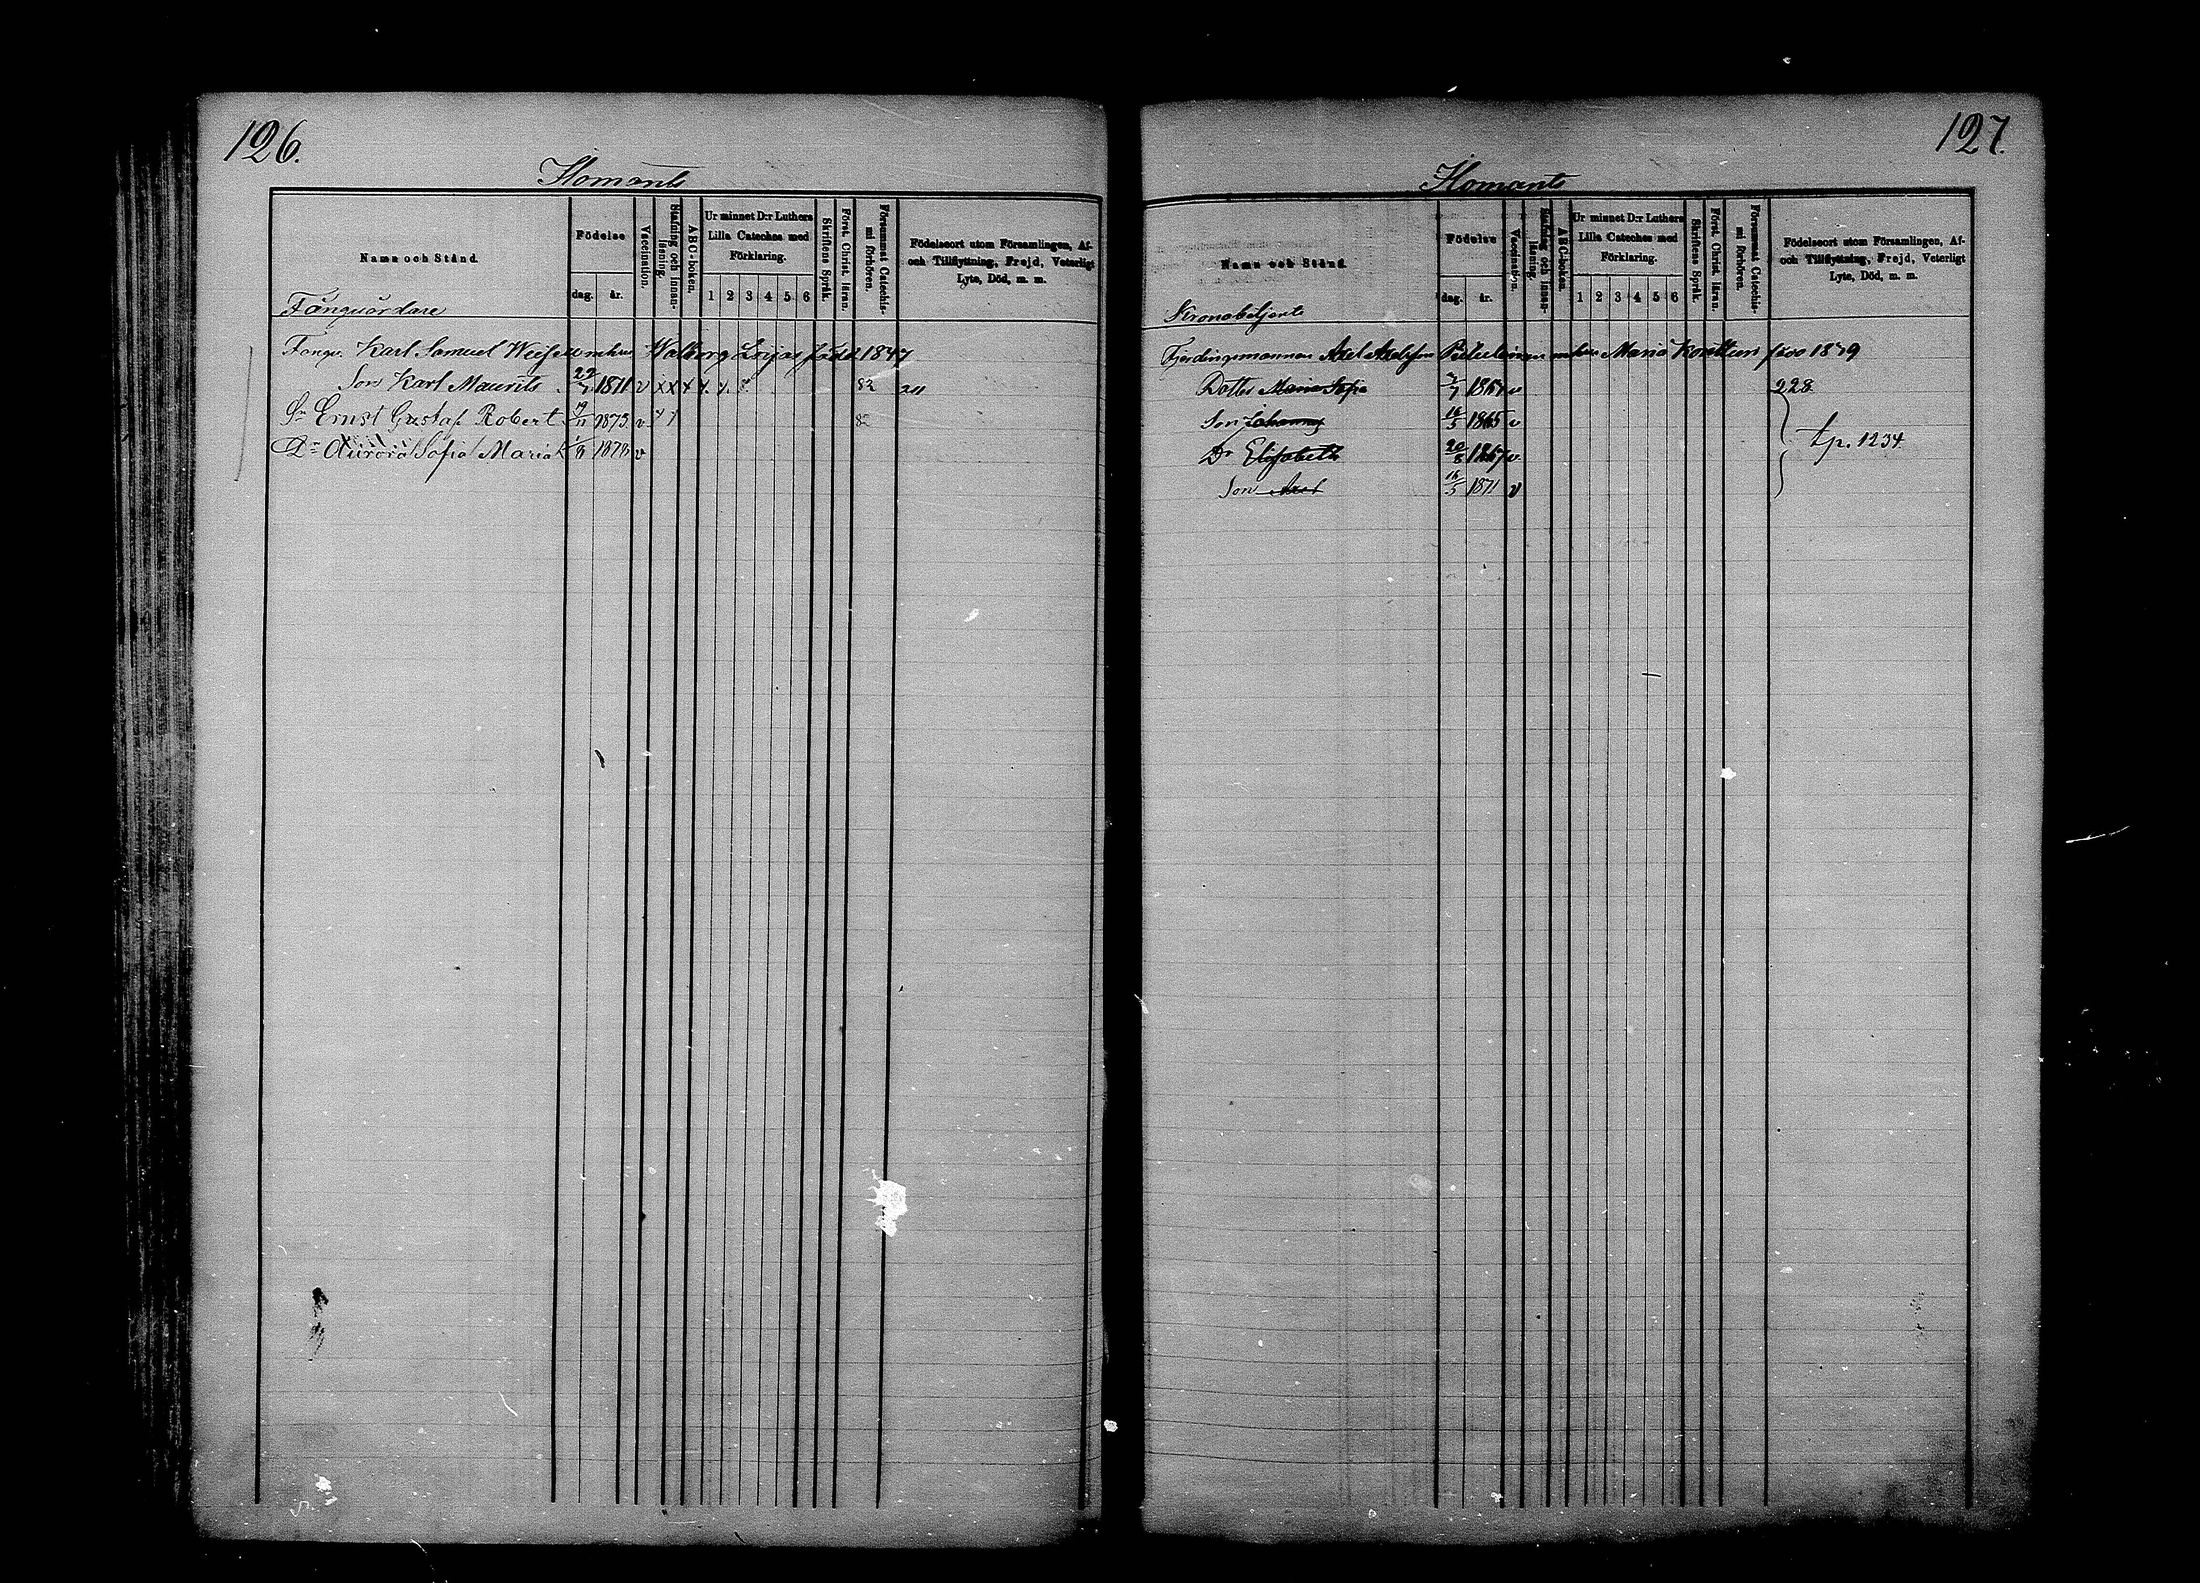 126.
Ilomants
Namn och Stånd.
Födelse
dag. år.
Vaccination.
Stafning och innan-läsning.
ABC-boken.
Ur minnet D:r Luthers Lilla Cateches med Förklaring.
1 2 3 4 5 6
Skriftens Språk.
Först. Christ. läran.
Försummat Catechis-mi förhören.
Födelseort utom Församlingen, Af-
och Tillflyttning, Frejd, Veterligt
Lyte, Död, m. m.
Fångvårdare
Fångv. Karl Samuel hus Walborg född 1847
Son Karl Maurits 1871 v x x x x x 82 211
Sn Ernst Gustaf Robert 1873 v x x 82
Dr Aurora Sofia Maria 1878 v
127.
Ilomants
Namn och Stånd.
Födelse
dag. år.
Vaccination.
Stafning och innan-läsning.
ABC-boken.
Ur minnet D:r Luthers Lilla Cateches med Förklaring.
1 2 3 4 5 6
Skriftens Språk.
Först. Christ. läran.
Försummat Catechis-mi förhören.
Födelseort utom Församlingen, Af-
och Tillflyttning, Frejd, Veterligt
Lyte, Död, m. m.
Kronobetjente
Fjerdingsmannen Axel Axelsson hus Maria 1879
Dotter Maria Sofia v 228
Son Johannes 16/5 1865 v
Dr Elisabeth 20/8 1867 v tp. 1234
Son Axel 16/5 1871 v